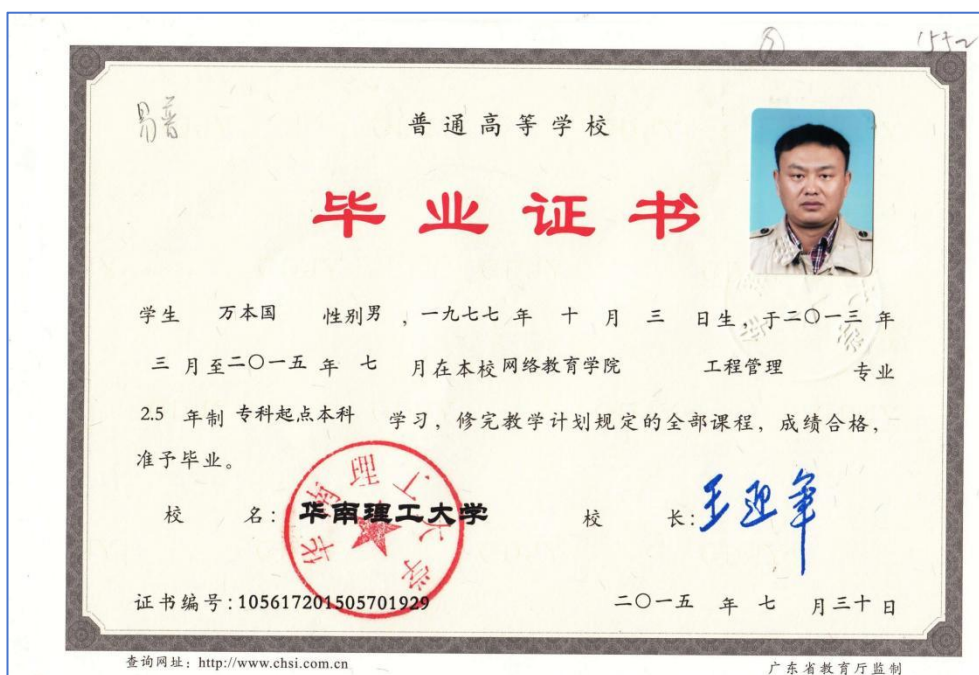 易普
普通高等学校
毕业证书
学生 万本国 性别男 ，一九七七 年 十 月 三 日生，于二〇一三 年
三 月至二〇一五 年 七 月在本校 网络教育学院 工程管理 专业
2.5 年制 专科起点本科 学习，修完教学计划规定的全部课程，成绩合格，
准予毕业。
校 名：华南理工大学 校 长：王迎军
华南理工大学
证书编号：105617201505701929 二〇一五 年 七 月三十日
查询网址：http://www.chsi.com.cn 广东省教育厅监制